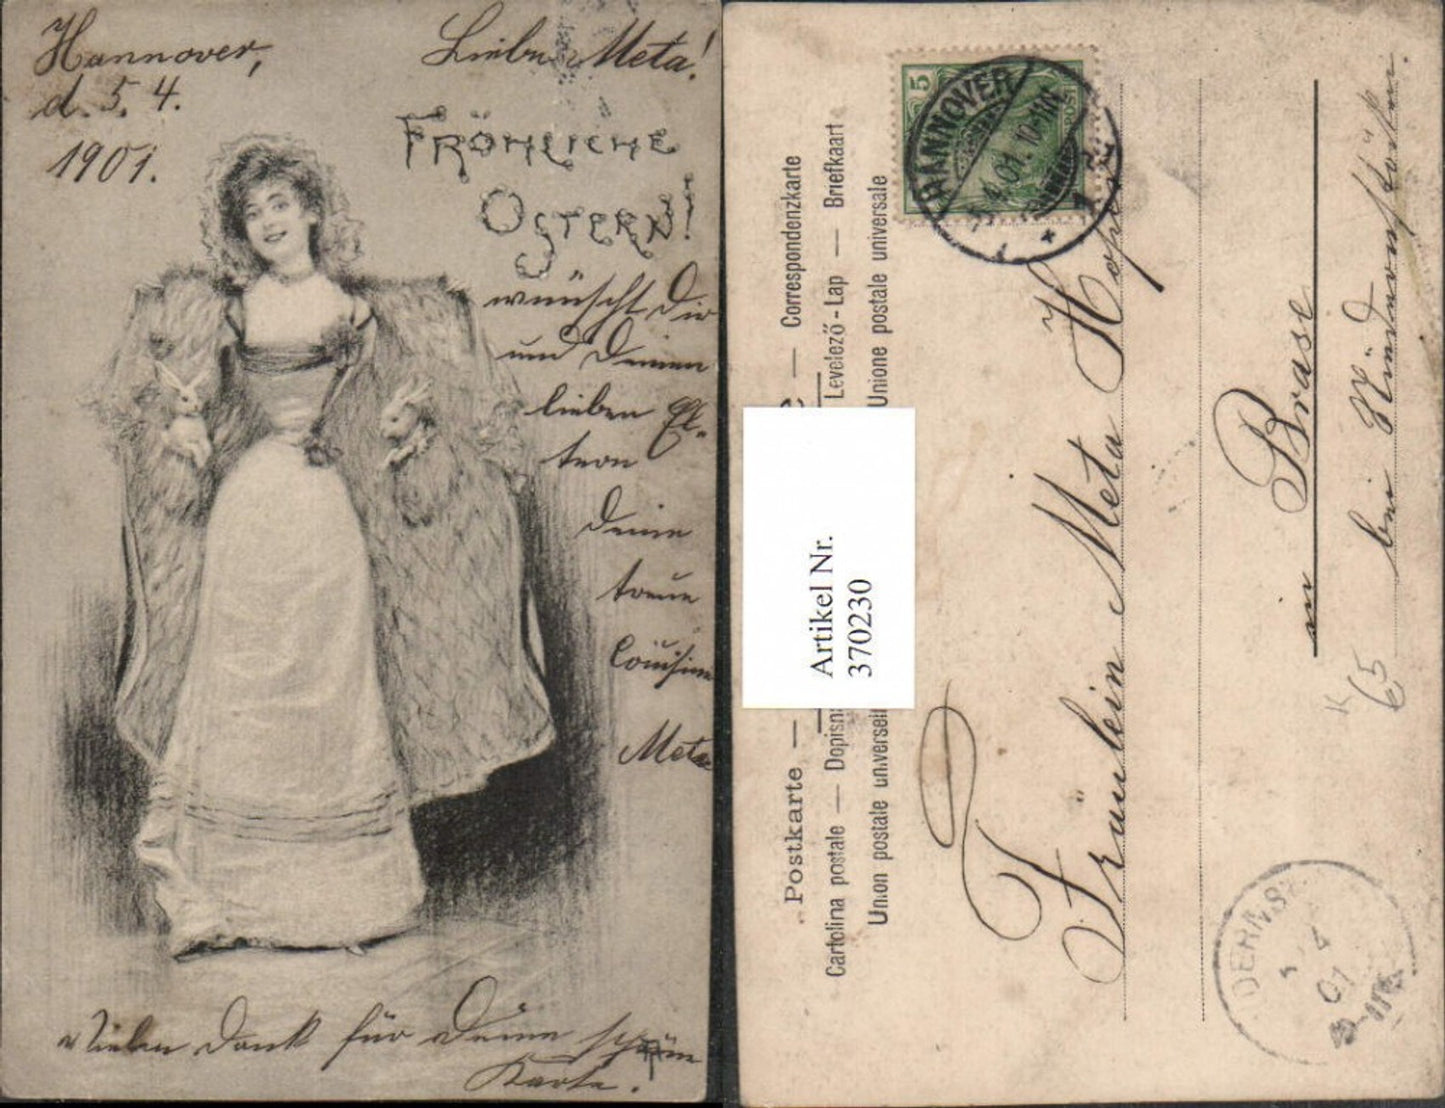 Hannover,
d. 5. 4.
1901.
Liebe Meta!
FRÖHLICHE
OSTERN!
wünscht Dir
und Deinen
lieben El-
tern
Deine
treue
Cousine
Meta
Vielen Dank für Deine schöne
Karte.
Postkarte — — Correspondenzkarte
Cartolina postale — Dopisna Levelező-Lap — Briefkaart
Union postale universelle Unione postale universale
5
HANNOVER
4.01.10-11N.
Artikel Nr.
370230
Fräulein Meta
in Brase
bei
K
65
01